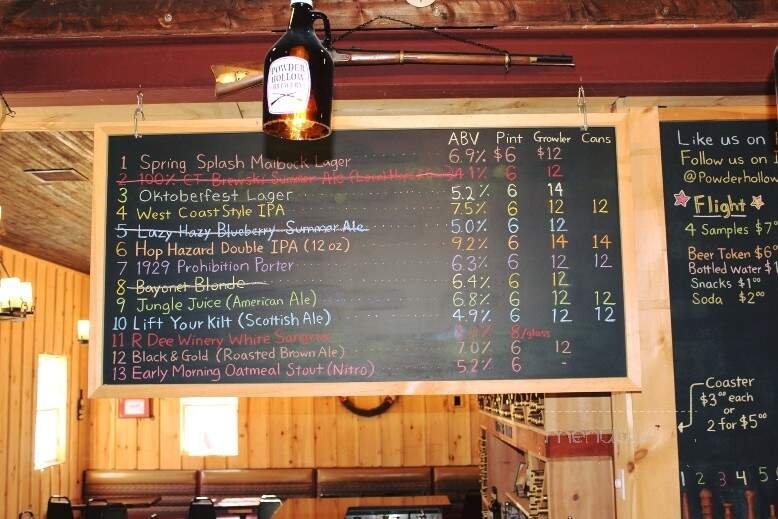 POWDER
HOLLOW
BREWERY
ABV Pint Growler Cans
1 Spring Splash Maibock Lager 6.9% $6 $12
2 100% CT Brewski Summer Ale 4.1% 6 12
3 Oktoberfest Lager 5.2% 6 14
4 West Coast Style IPA 7.5% 6 12 12
5 Lazy Hazy Blueberry Summer Ale 5.0% 6 12
6 Hop Hazard Double IPA (12 oz) 9.2% 6 14 14
7 1929 Prohibition Porter 6.3% 6 12 12
8 Bayonet Blonde 6.4% 6 12
9 Jungle Juice (American Ale) 6.8% 6 12 12
10 Lift Your Kilt (Scottish Ale) 4.9% 6 12 12
11 R Dee Winery White Sangria 8/glass
12 Black & Gold (Roasted Brown Ale) 7.0% 6 12
13 Early Morning Oatmeal Stout (Nitro) 5.2% 6 -
Like us on
Follow us on
@Powderhollow
Flight
4 Samples $7
Beer Token $6
Bottled Water $1
Snacks $1⁰⁰
Soda $2⁰⁰
Coaster
$3⁰⁰ each
or
2 for $5⁰⁰
1 2 3 4 5
menu